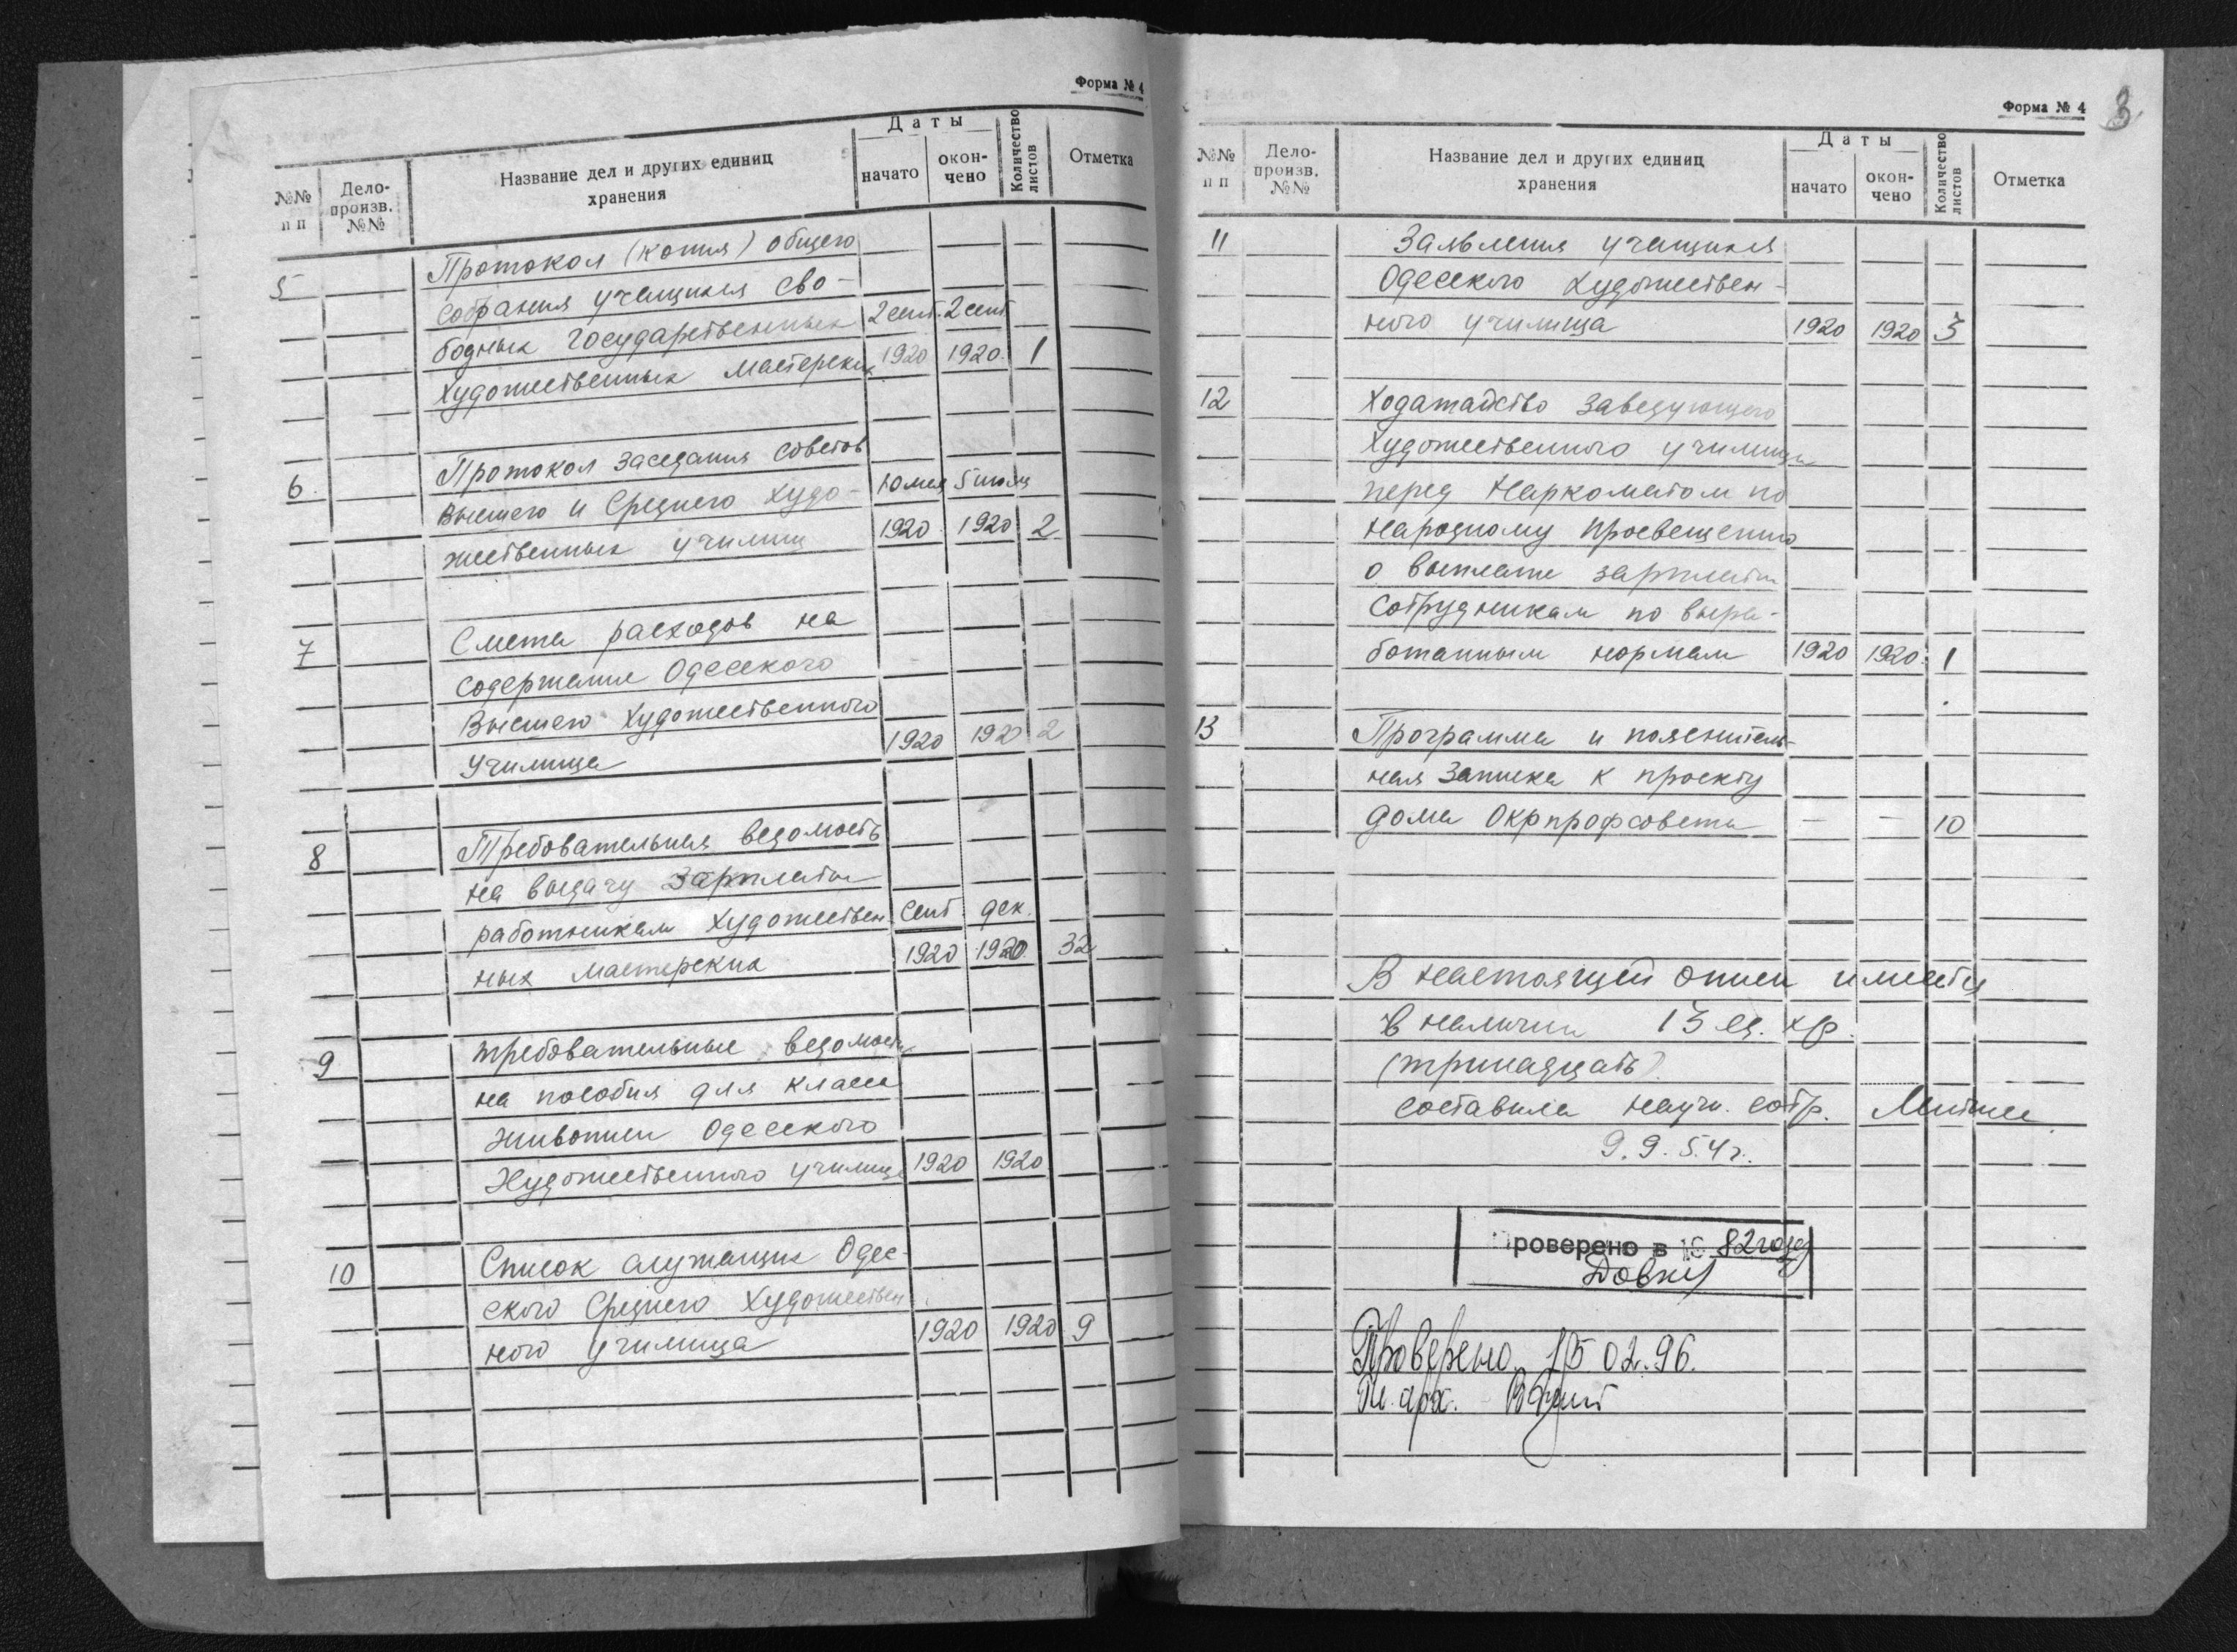 Форма № 4
№№ п п
Дело-произв. №№
Название дел и других единиц хранения
Даты
начато
окон-чено
Количество листов
Отметка
5
Протокол (копия) общего
собрания учащихся сво-
бодных Государственных 2 сент. 2 сент
Художественных Мастерских 1920 1920. 1
6.
Протокол заседания советов
Высшего и Среднего Худо- 10 мая 5 июля
жественных училищ 1920. 1920 2
7
Смета расходов на
содержание Одесского
Высшего Художественного
Училища 1920 1920 2
8
Требовательная ведомость
на выдачу зарплаты
работникам Художествен- сент. дек.
ных мастерских 1920 1920. 32
9
Требовательные ведомости
на пособия для класса
живописи Одесского
Художественного училища 1920 1920
10
Список служащих Одес-
ского Среднего Художествен
ного училища 1920 1920 9
Форма № 4
3
№№ п п
Дело-произв. №№
Название дел и других единиц хранения
Даты
начато
окон-чено
Количество листов
Отметка
11
Заявления учащихся
Одесского Художествен-
ного училища 1920 1920 3
12
Ходатайство Заведующего
Художественного училища
перед Наркоматом по
народному просвещению
о выплате зарплаты
сотрудникам по выра-
ботанным нормам 1920 1920. 1
13
Программа и пояснитель-
ная Записка к проекту
дома Окрпрофсовета — — 10
В настоящей описи имеется
в наличии 13 ед. хр.
(тринадцать).
составила научн. сотр.
9.9.54 г.
Проверено в 19 82 году
Проверено 15 02.96.
арх.